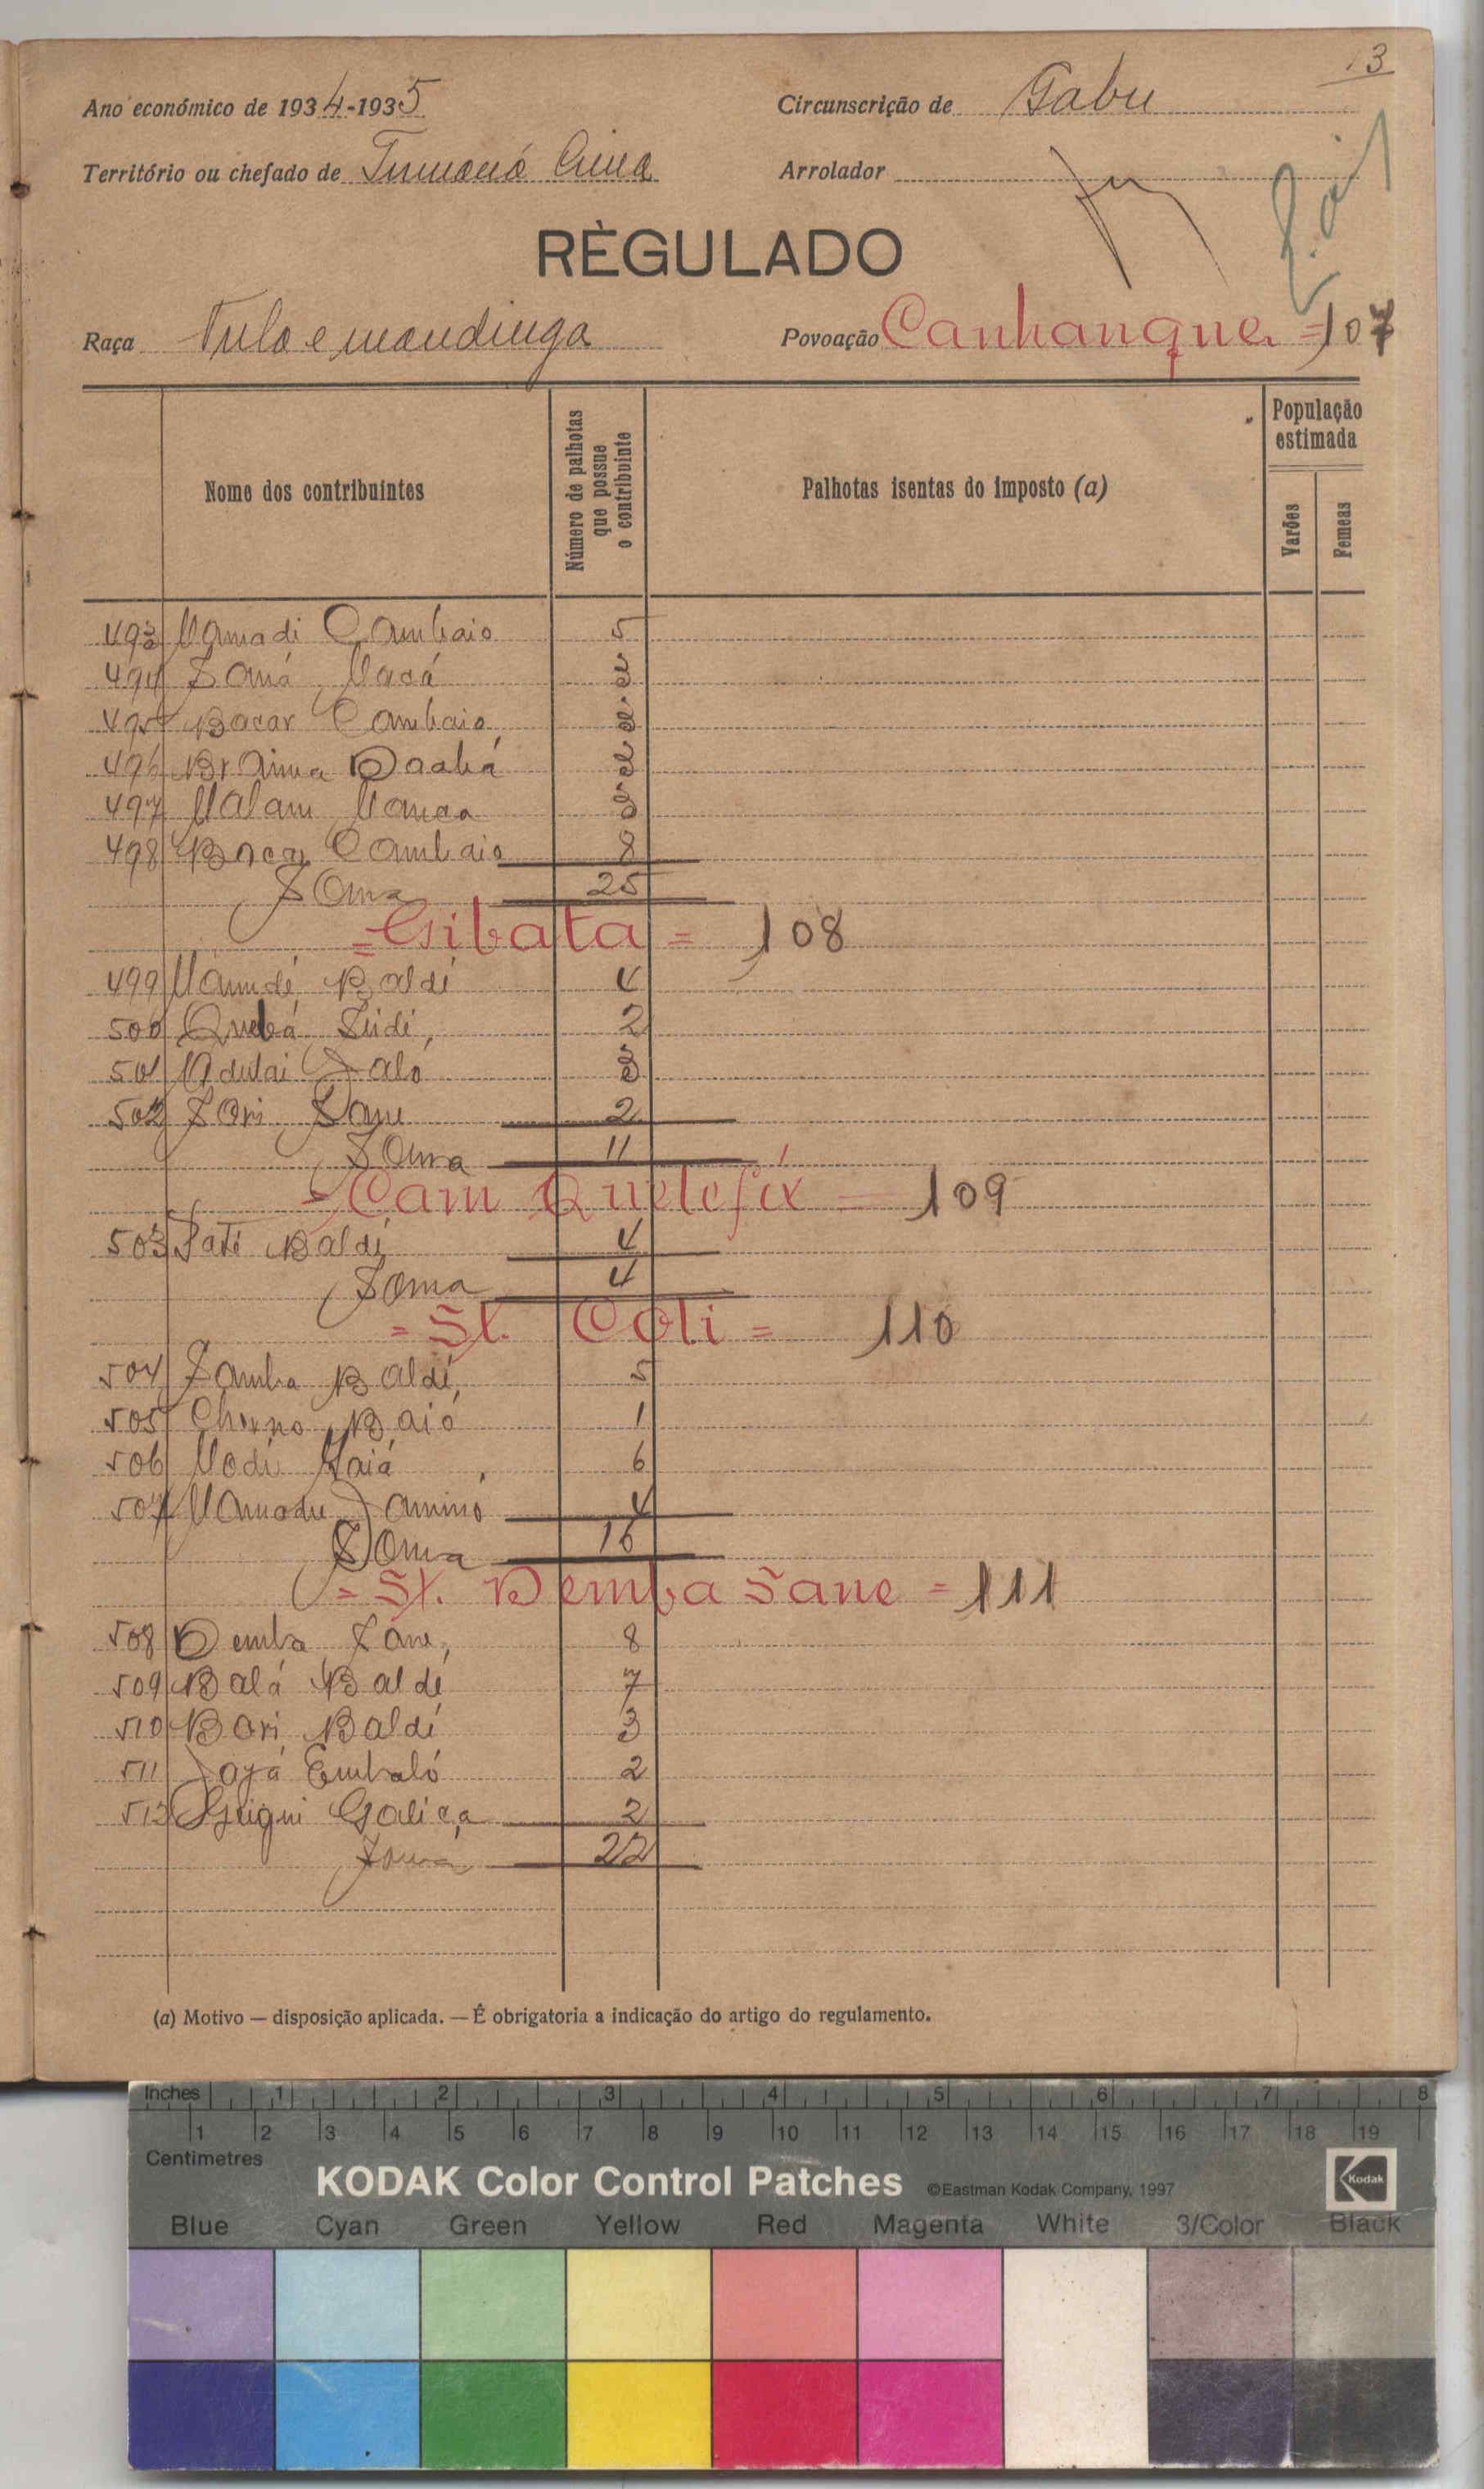 13
Ano económico de 1934-1935 Circunscrição de Gabu
Território ou chefado de Tumaná Cima Arrolador
RÈGULADO
Raça Fula e mandinga Povoação Canhanque = 107
Nome dos contribuintes Número de palhotas que possue o contribuinte Palhotas isentas do imposto (a) População estimada
Varões Femeas
493 Mamadi Cambaio 5
494 Saná Macá
495 Bacar Cambaio
496 Braima Daabá
497 Malam Manca
498 Cambaio 8
Soma 25
= Gibata = 108
499 Mamdé Baldé 4
500 Quebá Sidi 2
501 Adulai Jaló 3
502 Sori Sane 2
Soma 11
= Cam Quelefix = 109
503 Paté Baldé 4
Soma 4
= St. Coli = 110
504 Samba Baldé 5
505 Cherno Baió 1
506 Modi Maiá 6
507 Mamadu Jamino 4
Soma 16
= St. Demba Sane = 111
508 Demba Sane 8
509 Balá Baldé 7
510 Bori Baldé 3
511 Jajá Embaló 2
512 Galiça 2
Soma 22
(a) Motivo — disposição aplicada. — É obrigatoria a indicação do artigo do regulamento.
Inches 1 2 3 4 5 6 7 8
1 2 3 4 5 6 7 8 9 10 11 12 13 14 15 16 17 18 19
Centimetres
KODAK Color Control Patches ©Eastman Kodak Company, 1997 Kodak
Blue Cyan Green Yellow Red Magenta White 3/Color Black